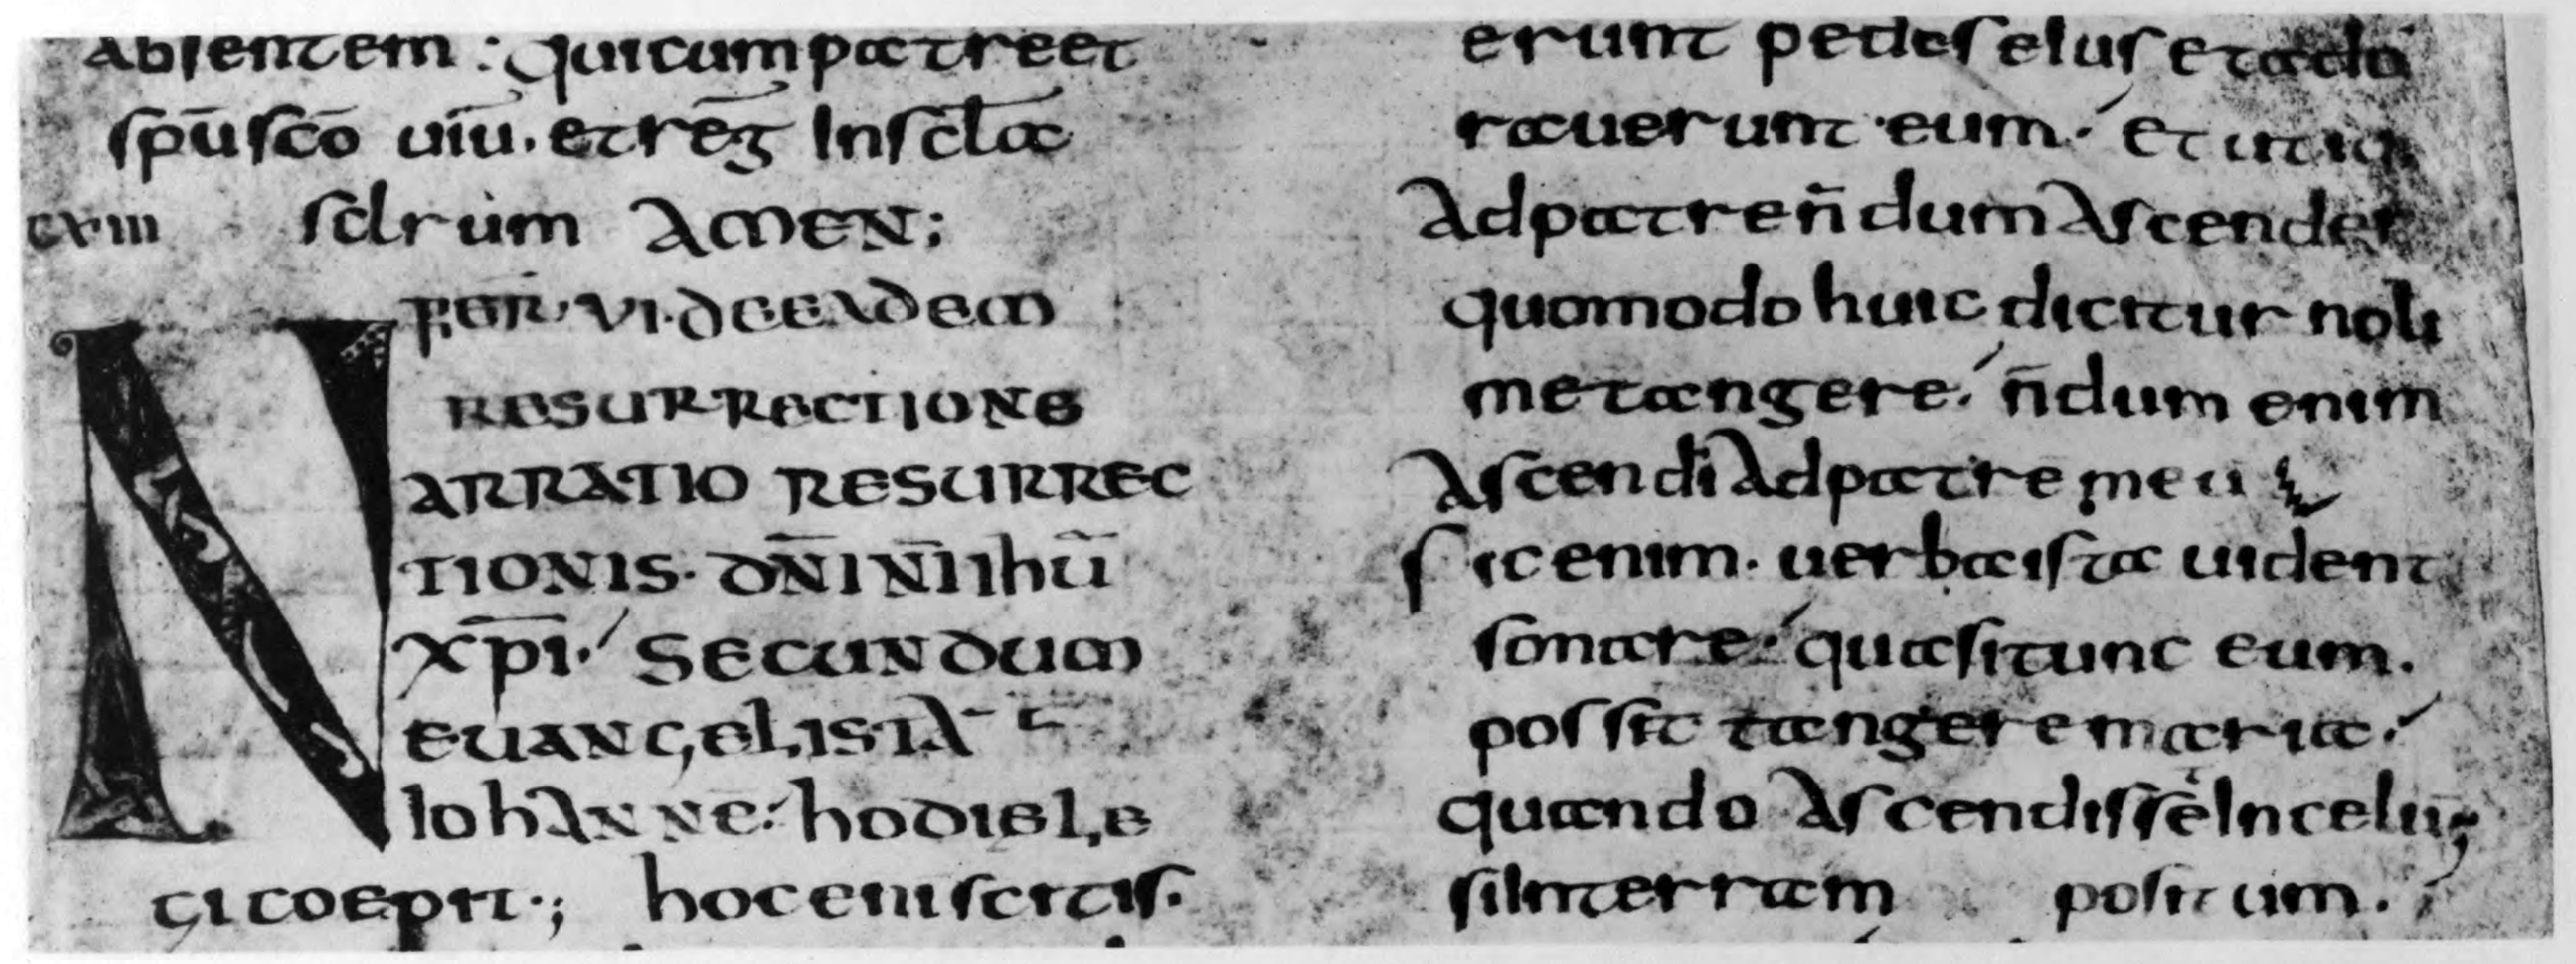 absentem : qui cum patre et
sp̄u sc̄o uiū. et reḡ In sc̄la
cxiii
sclrum AMEN;
FER̄ VI. DE EADEM
RESURRECTIONE
NARRATIO RESURREC
TIONIS. DN̄I N̄I ihū
XP̄I. SECUNDUM
EUANGELISTĀ
IOHANNĒ: HODIE LE
GI COEPIT.; hoc eni scitis.
erunt pedes eius et ado
rauerunt eum. et utiq;
Ad patre n̄dum Ascender
quomodo huic dicitur noli
me tangere. n̄dum enim
Ascendi Ad patrē meū
sic enim. uerba ista uident
sonare. quasi tunc eum.
possit tangere maria.
quando Ascendisse In celū;
si In terram positum.